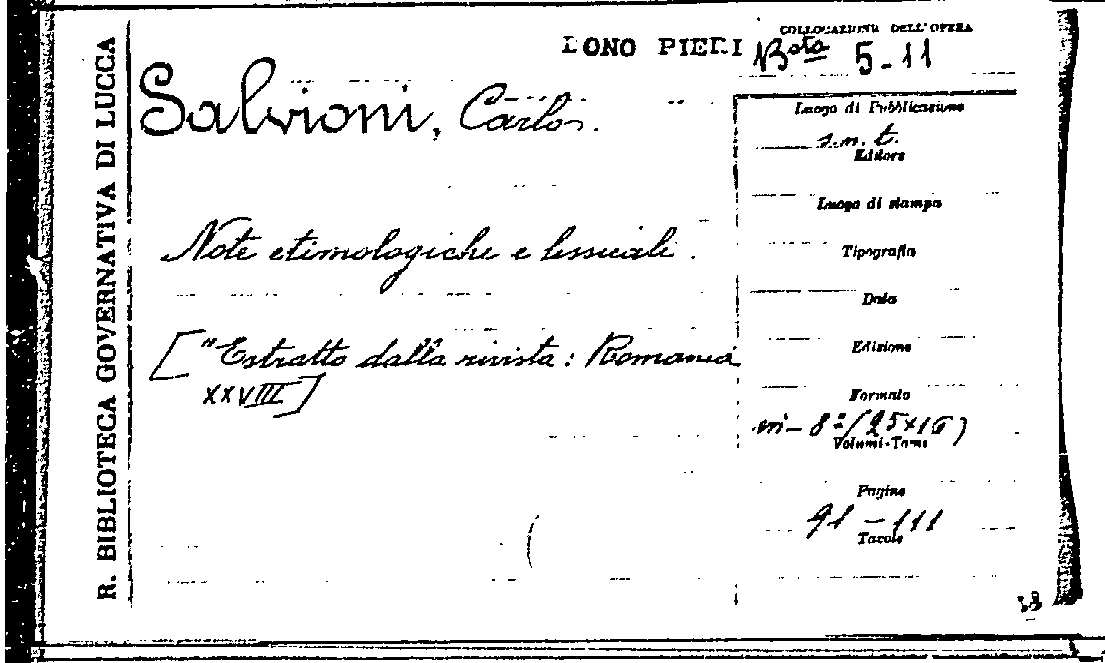 R. BIBLIOTECA GOVERNATIVA DI LUCCA
DONO PIERI
COLLOCAZIONE DELL'OPERA
Bsta 5-11
Salvioni, Carlo.
Luogo di Pubblicazione
s.n.t.
Editore
Luogo di stampa
Note etimologiche e lessicali.
Tipografia
Data
["Estratto dalla rivista: Romania
XXVIII]
Edizione
Formato
in-8º (25x16)
Volumi-Tomi
Pagine
91-111
Tavole